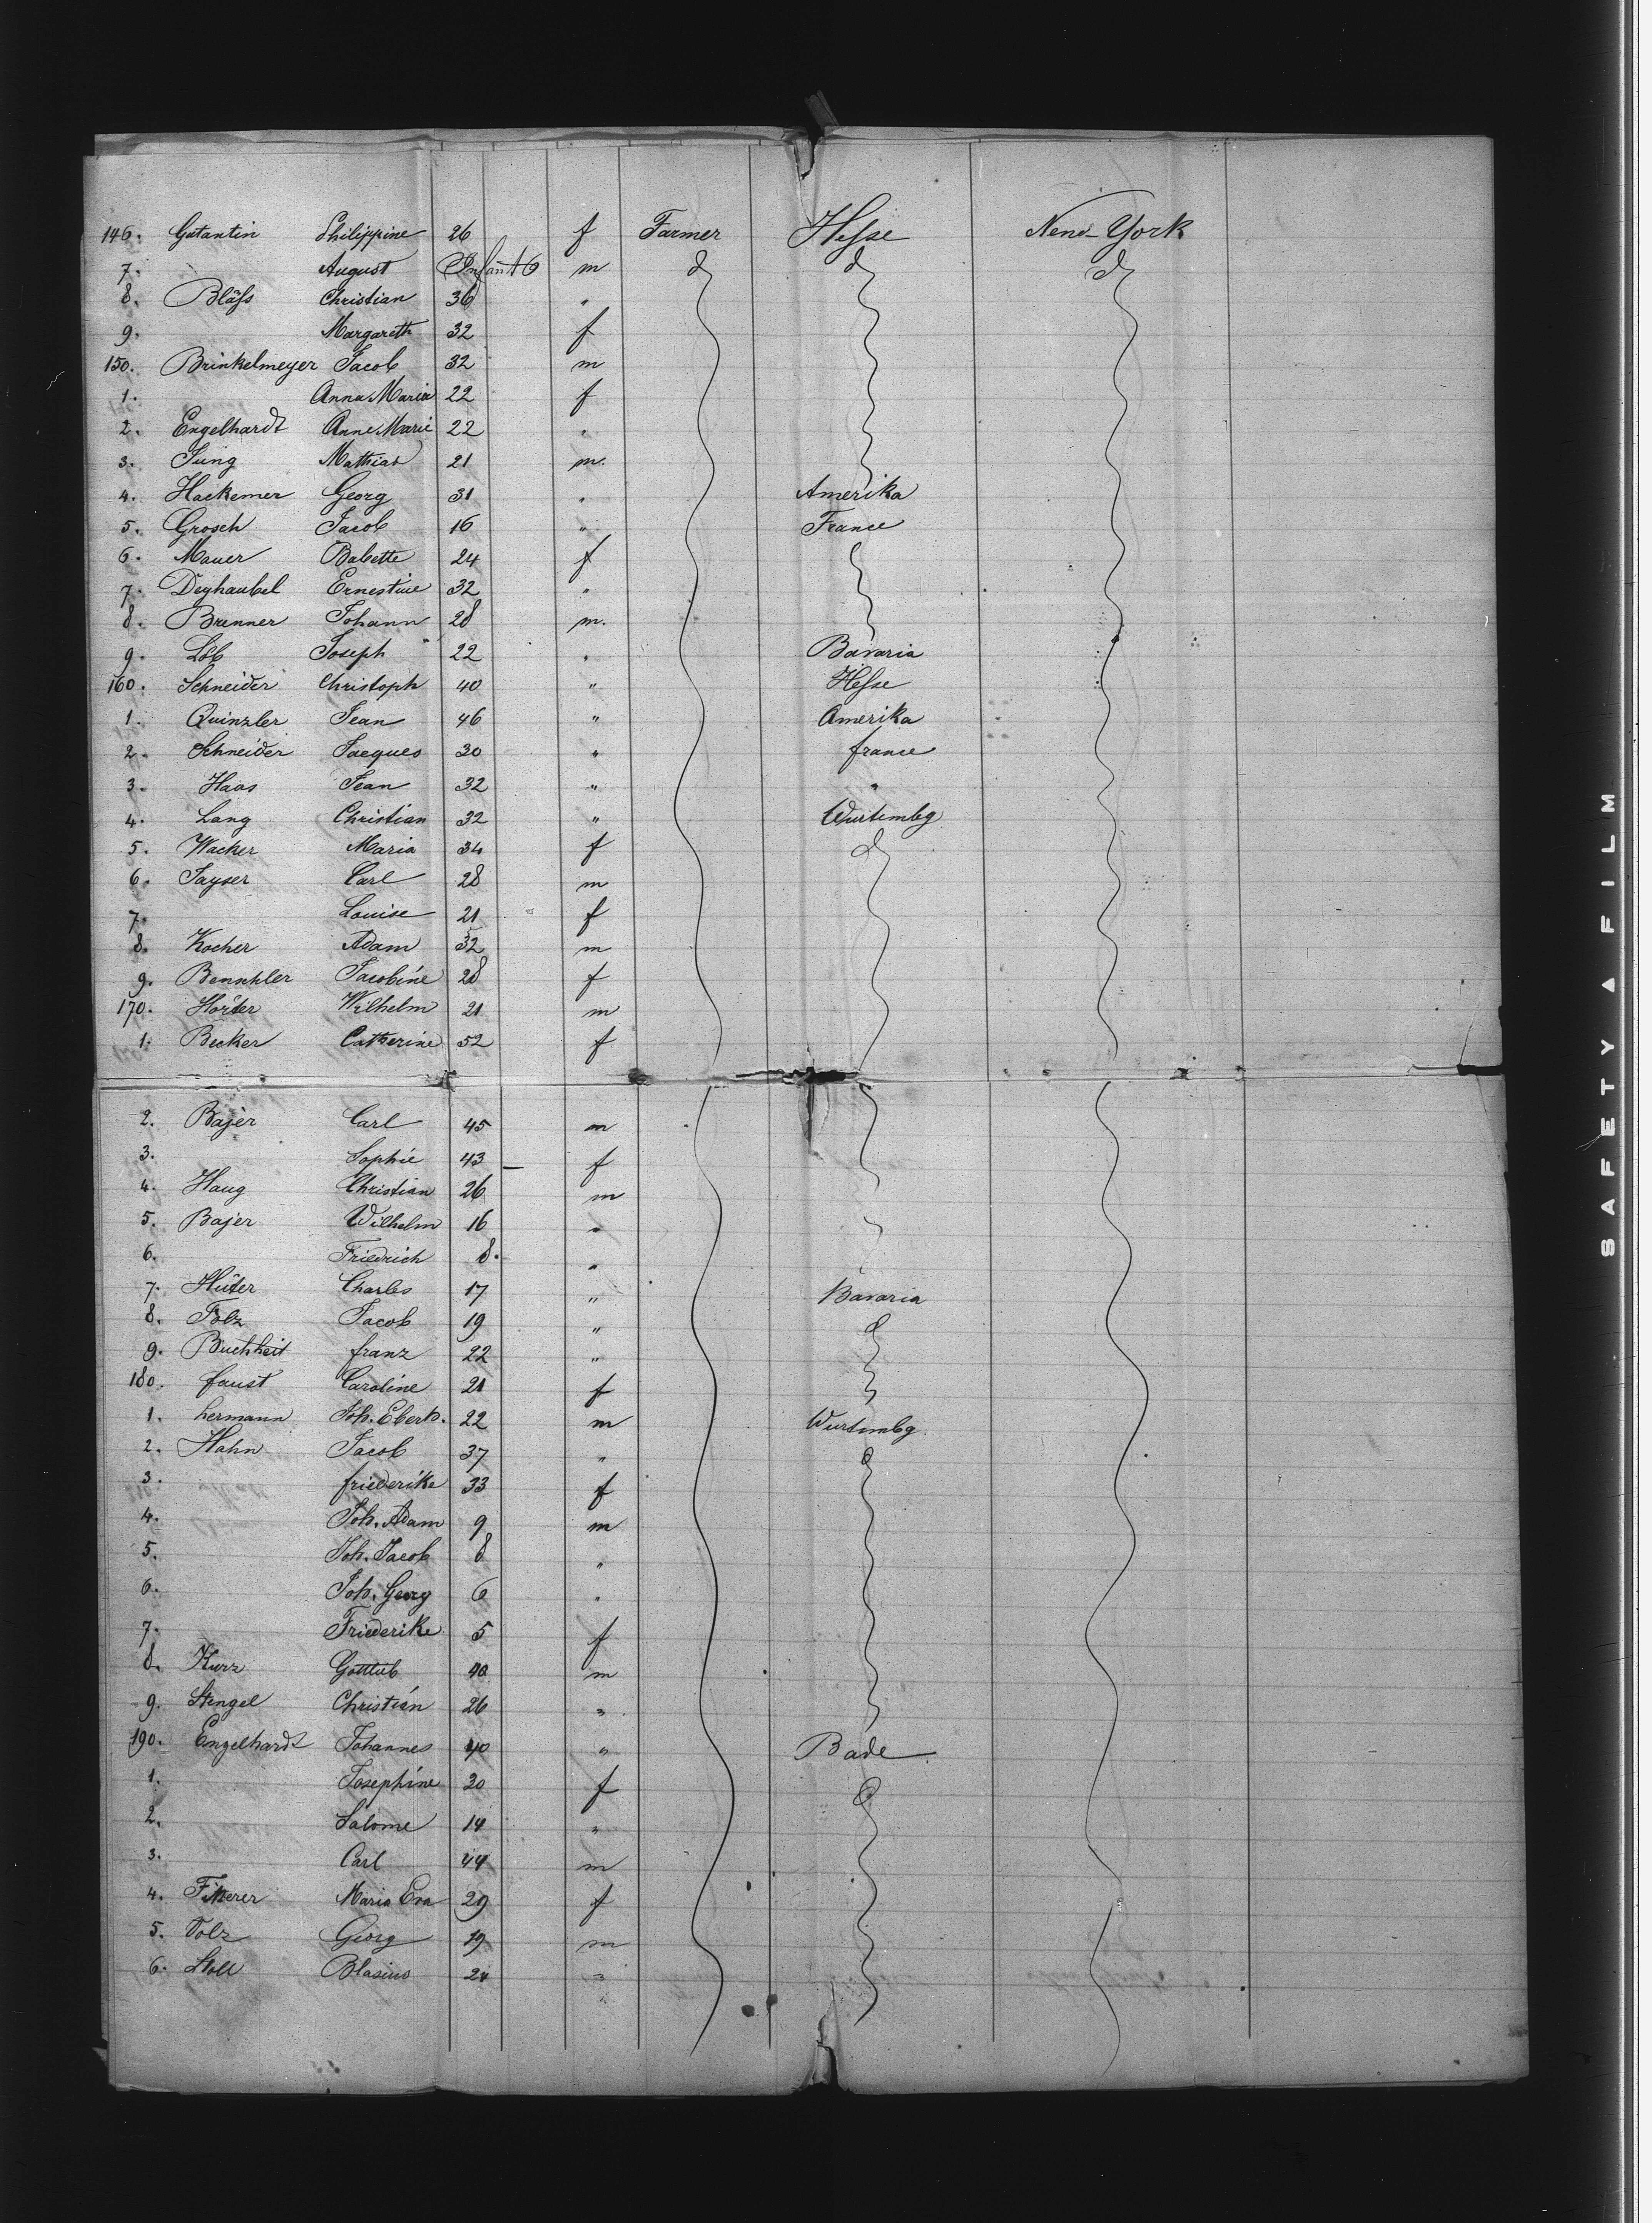 146. Gatantin Philippine 26 f Farmer Hesse New-York
7. August Infant 6 m d d d
8. Bläss Christian 36 "
9. Margareth 32 f
150. Brinkelmeyer Jacob 32 m
1. Anna Maria 22 f
2. Engelhardt Anne Marie 22 "
3. Jung Mathias 21 m.
4. Hackemer Georg 31 " Amerika
5. Grosch Jacob 16 " France
6. Mauer Babette 24 f
7. Deyhaubel Ernestine 32 "
8. Brenner Johann 28 m.
9. Löb Joseph 22 " Bavaria
160. Schneider Christoph 40 " Hesse
1. Quinzler Jean 46 " Amerika
2. Schneider Jacques 30 " france
3. Haas Jean 32 " "
4. Lang Christian 32 " Wurtembg
5. Wacker Maria 34 f d
6. Jayser Carl 28 m
7. Louise 21 f
8. Kocher Adam 32 m
9. Jacobine 28 f
170. Hörter Wilhelm 21 m
1. Becker Catherine 52 f
2. Bajer Carl 45 m
3. Sophie 43 f
4. Haug Christian 26 m
5. Bajer Wilhelm 16 "
6. Friedrich 8. "
7. Hüter Charles 17 " Bavaria
8. Folz Jacob 19 " d
9. Buchheit franz 22 "
180. faust Caroline 21 f
1. hermann Joh. Eberh. 22 m Wurtembg.
2. Hahn Jacob 37 " d
3. friederike 33 f
4. Joh. Adam 9 m
5. Joh. Jacob 8 "
6. Joh. Georg 6 "
7. Friederike 5 f
8. Kurz Gottlieb 40 m
9. Stengel Christian 26 "
190. Engelhardt Johannes 40 " Bade
1. Josephine 30 f d
2. Salome 14 "
3. Carl 44 m
4. Maria Eva 29 f
5. Volz Georg 19 m
6. Stoll Blasius 24 "
SAFETY A FILM